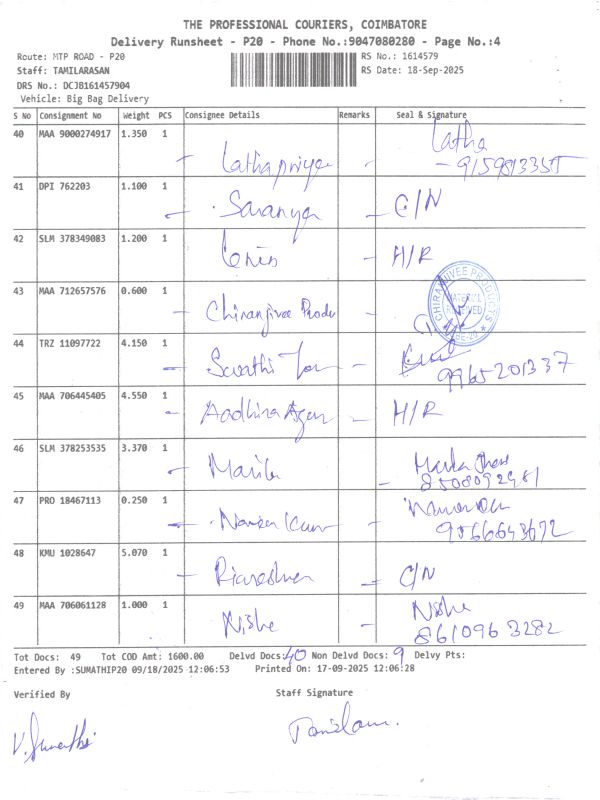 THE PROFESSIONAL COURIERS, COIMBATORE
Delivery Runsheet - P20 - Phone No.:9047080280 - Page No.:4
Route: MTP ROAD - P20 RS No.: 1614579
Staff: TAMILARASAN RS Date: 18-Sep-2025
DRS No.: DCJB161457904
Vehicle: Big Bag Delivery
S No Consignment No Weight PCS Consignee Details Remarks Seal & Signature
40 MAA 9000274917 1.350 1 Lathapriya Latha
41 DPI 762203 1.100 1 Saranya C/N
42 SLM 378349083 1.200 1 H/R
43 MAA 712657576 0.600 1 Chiranjivee Produ CHIRANJIVEE PRODUCTS MATERIAL RECEIVED
44 TRZ 11097722 4.150 1 Swathi 9965201337
45 MAA 706445405 4.550 1 Aadhira H/R
46 SLM 378253535 3.370 1
47 PRO 18467113 0.250 1 9566643672
48 KMU 1028647 5.070 1 C/N
49 MAA 706061128 1.000 1 Nishe Nishe
8610963282
Tot Docs: 49 Tot COD Amt: 1600.00 Delvd Docs: 40 Non Delvd Docs: 9 Delvy Pts:
Entered By :SUMATHIP20 09/18/2025 12:06:53 Printed On: 17-09-2025 12:06:28
Verified By Staff Signature
V. Sumathi